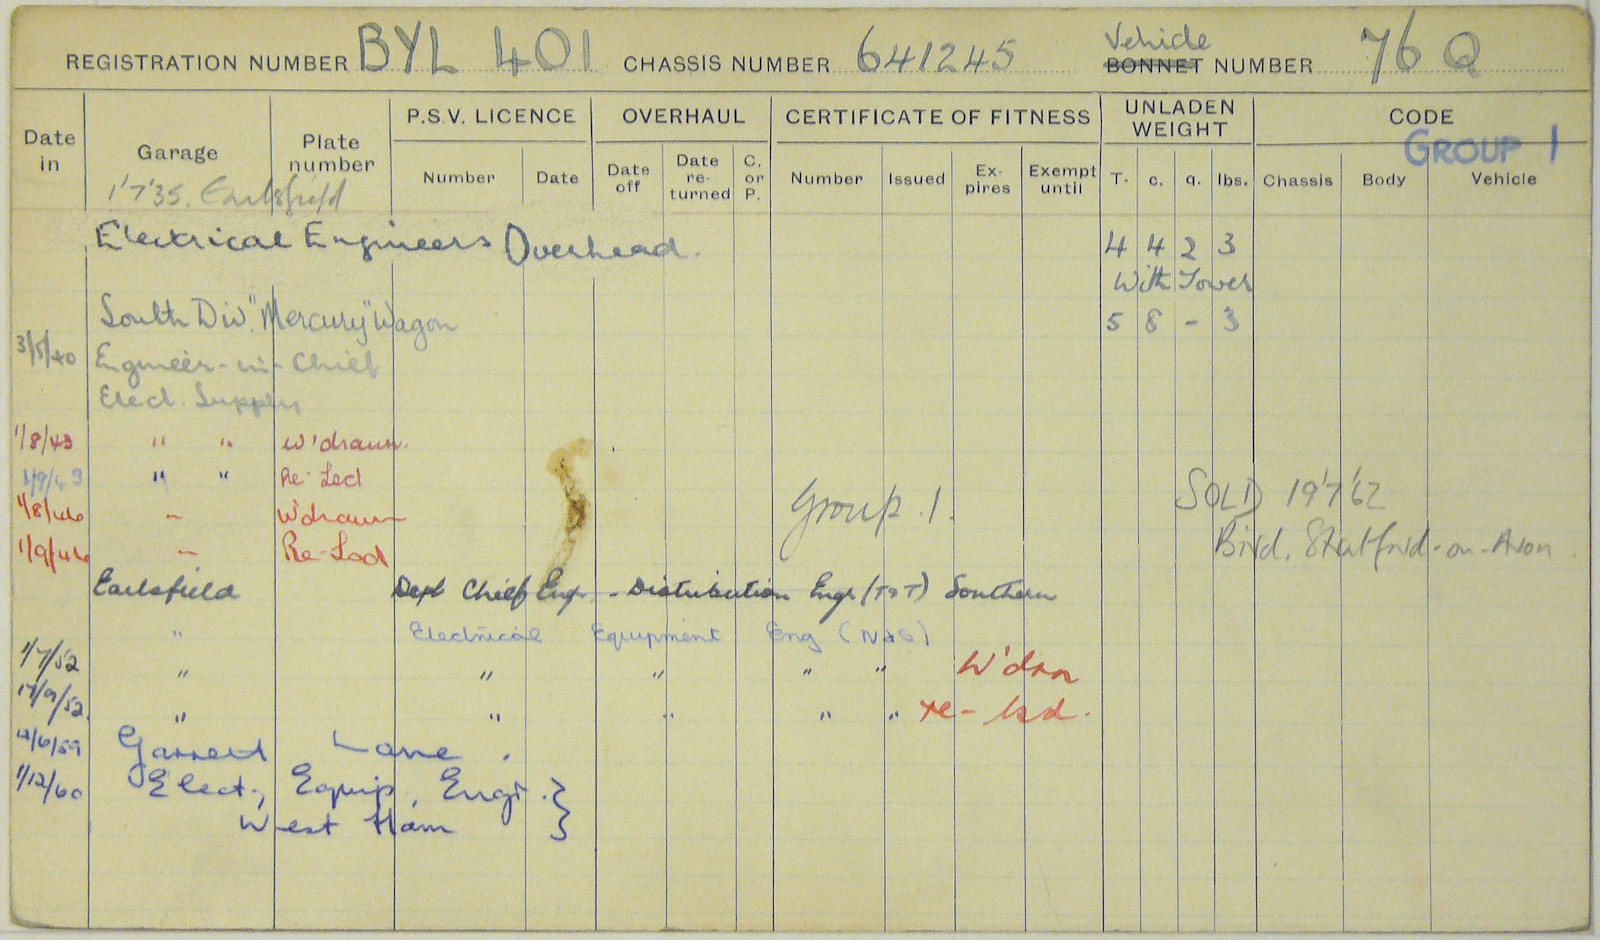 REGISTRATION NUMBER BYL 401 CHASSIS NUMBER 641245 Vehicle BONNET NUMBER 76 Q
Date in Garage Plate number P.S.V. LICENCE OVERHAUL CERTIFICATE OF FITNESS UNLADEN WEIGHT CODE
GROUP 1
Number Date Date off Date re-turned C. or P. Number Issued Ex-pires Exempt until T. c. q. lbs. Chassis Body Vehicle
1'7'35. Earlsfield
Electrical Engineers Overhead. 4 4 2 3
With Tower
South Div. "Mercury" Wagon 5 8 - 3
3/5/40 Engineer-in-Chief
Elect. Supply
1/8/43 " " W'drawn.
1/9/43 " " Re-Lcd
1/8/46 - W'drawn
Group. 1. SOLD 19'7'62
1/9/46 - Re-Lcd
Bird. Stratford-on-Avon.
Earlsfield Dept Chief Engr. - Distribution Engr (T&T) Southern
" Electrical Equipment Eng (N&S)
1/7/52 " " " " " W'drn
17/9/52 " " " " " re-lsd.
Garrett Lane.
1/12/60 Elect., Equip. Engr. }
West Ham